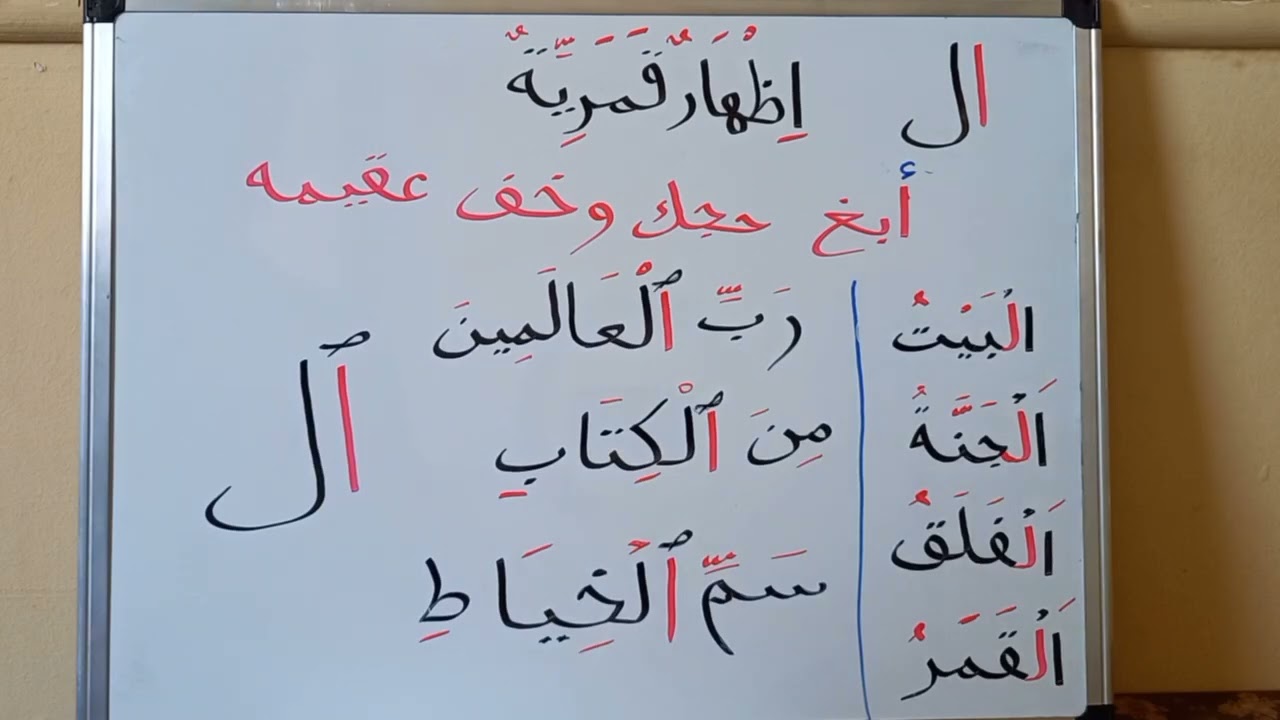 ال إِظْهَارٌ قَمَرِيَّةٌ
أبغ حجك وخف عقيمه
الْبَيْتُ
اَلْجَنَّةُ
اَلْفَلَقُ
اَلْقَمَرُ
رَبِّ ٱلْعَالَمِينَ
مِنَ ٱلْكِتَابِ
سَمِّ ٱلْخِيَاطِ
ٱل